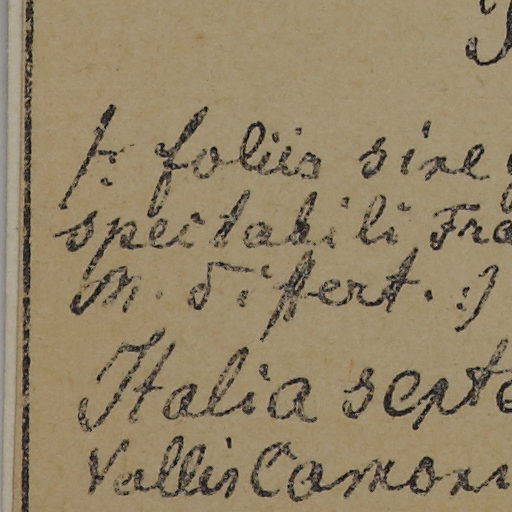 /: foliis sine
spectabili Fra
m. differt. :/
Italia septe
Vallis Camoni